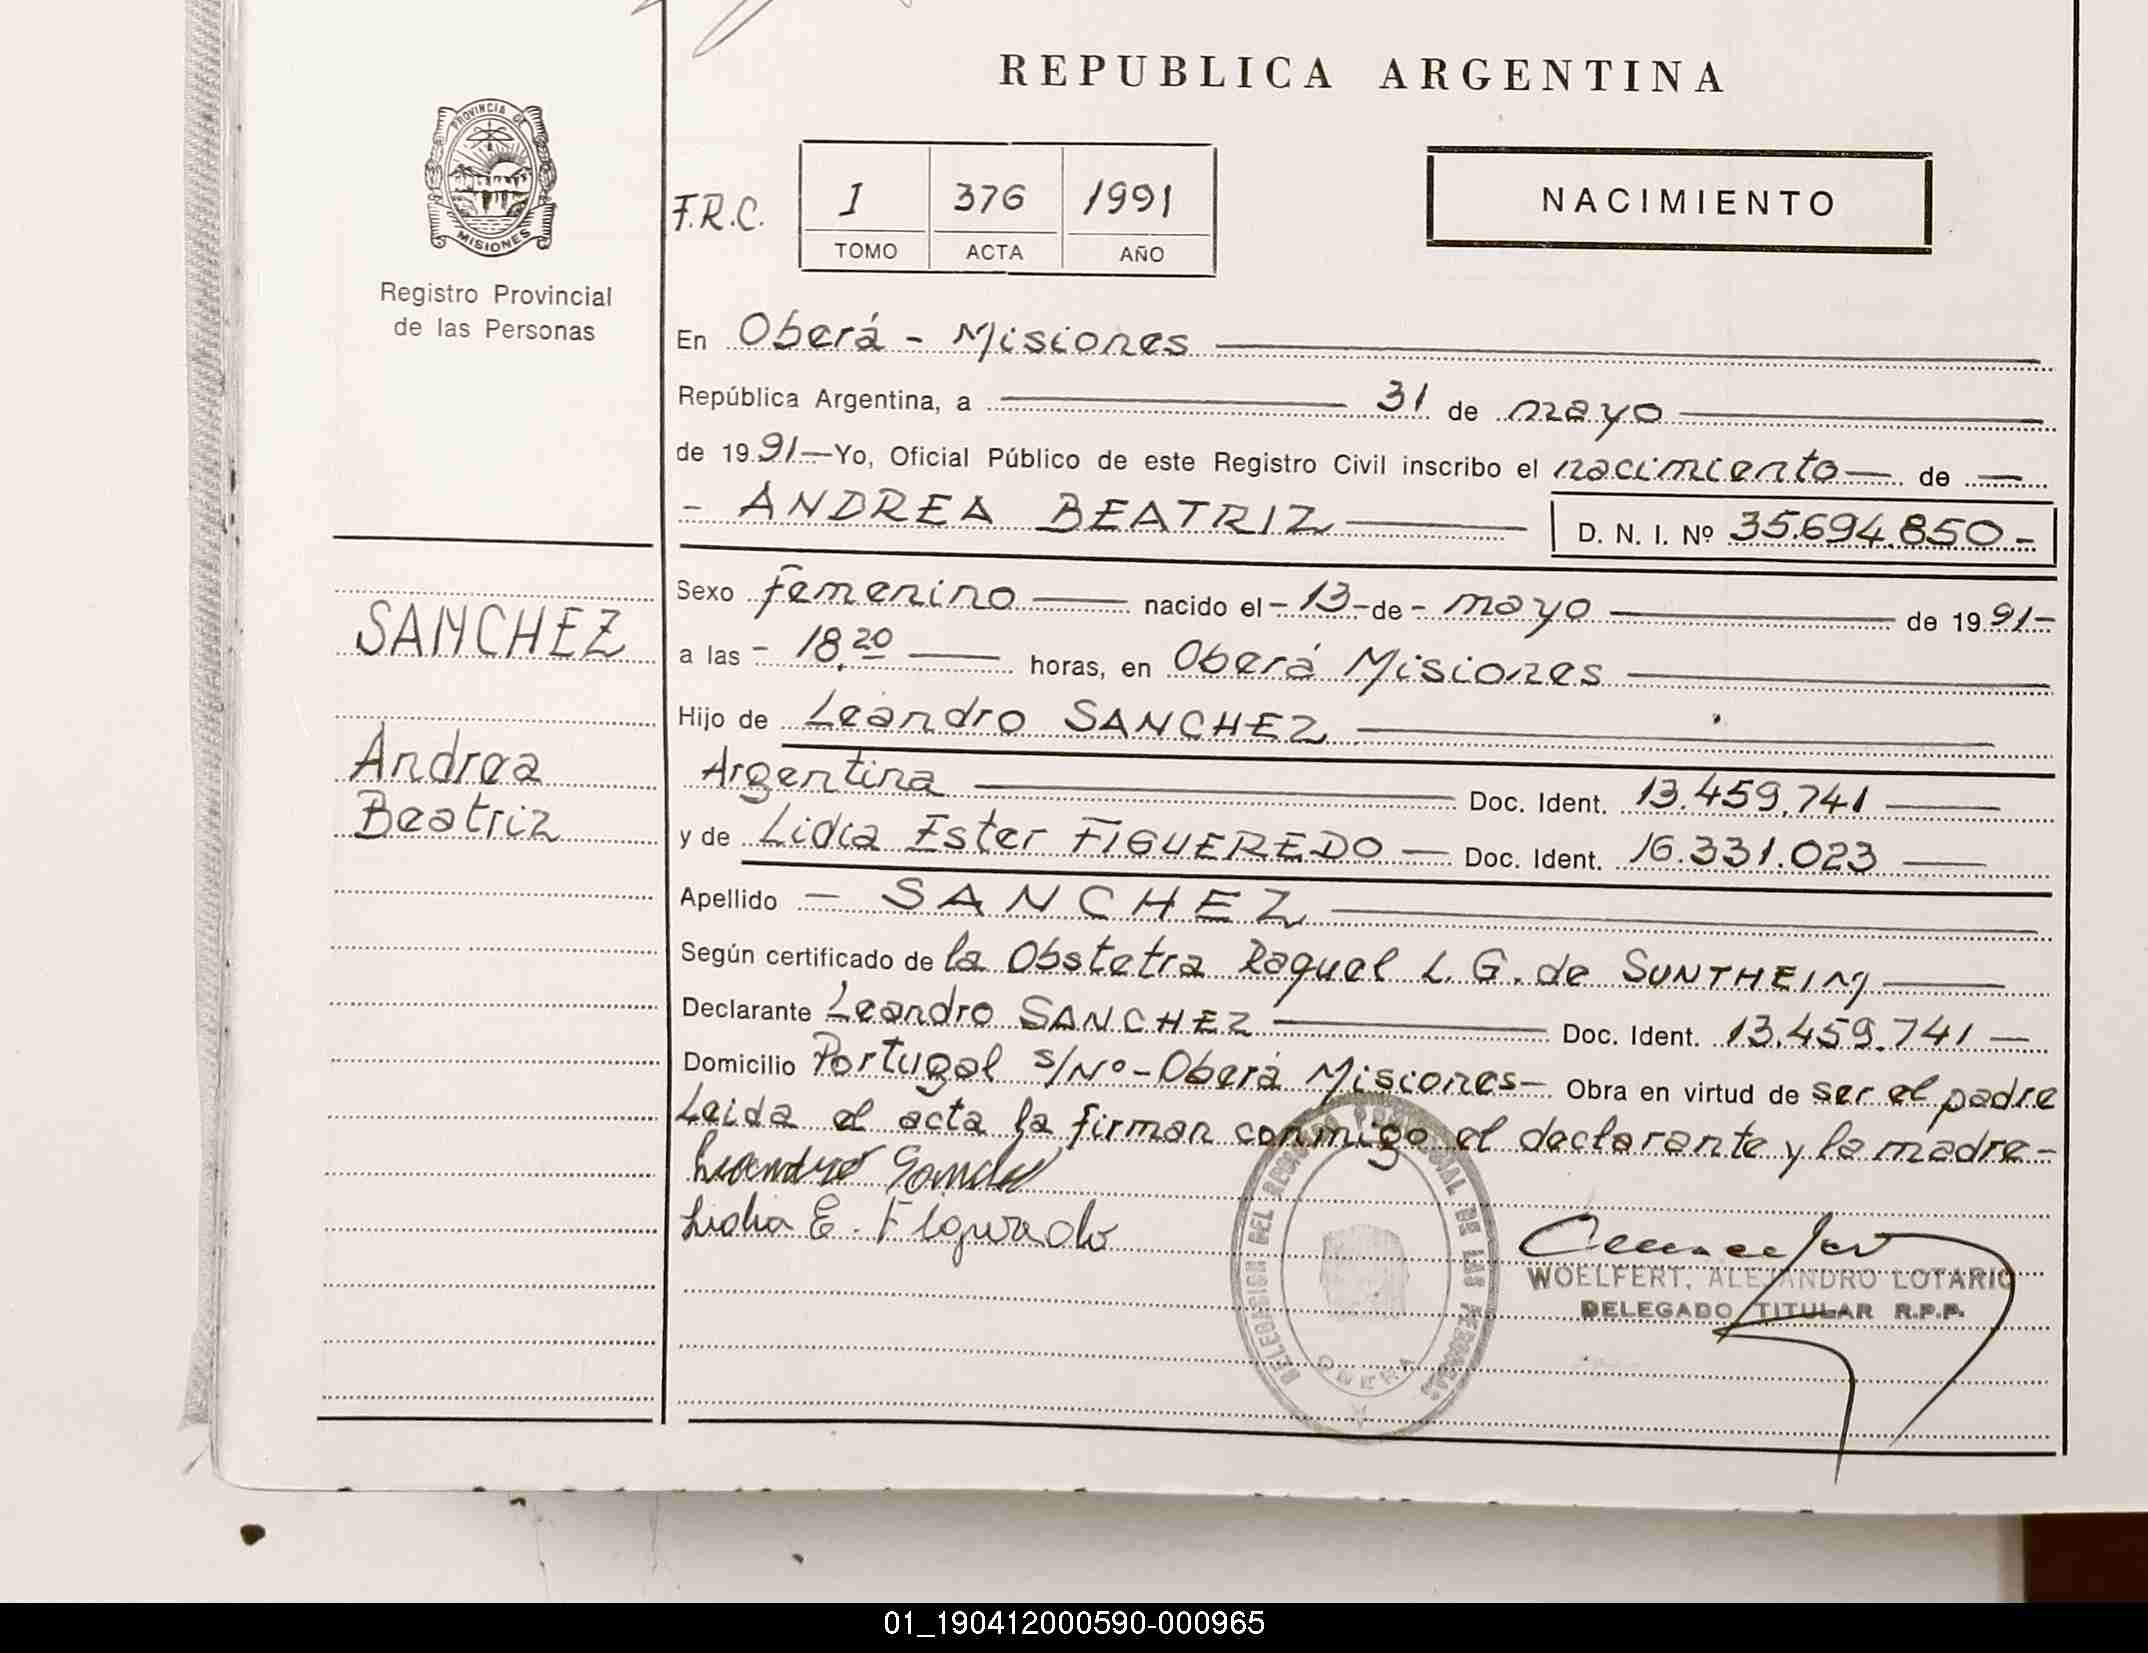 REPUBLICA ARGENTINA
PROVINCIA DE
MISIONES
Registro Provincial
de las Personas
F.R.C.
I 376 1991
TOMO ACTA AÑO
NACIMIENTO
En Oberá - Misiones
República Argentina, a 31 de mayo
de 1991 — Yo, Oficial Público de este Registro Civil inscribo el nacimiento — de —
- ANDREA BEATRIZ — D. N. I. Nº 35.694.850 -
SANCHEZ
Andrea
Beatriz
Sexo femenino — nacido el - 13 - de - mayo — de 1991 -
a las - 18,20 — horas, en Oberá Misiones
Hijo de Leandro SANCHEZ
Argentina — Doc. Ident. 13.459.741 —
y de Lidia Ester FIGUEREDO — Doc. Ident. 16.331.023 —
Apellido — SANCHEZ
Según certificado de la Obstetra Raquel L. G. de SUNTHEIM —
Declarante Leandro SANCHEZ — Doc. Ident. 13.459.741 —
Domicilio Portugal s/Nº - Oberá Misiones - Obra en virtud de ser el padre
Leida el acta la firman conmigo el declarante y la madre -
Leandro Sanchez
Lidia E. Figueredo
DELEGACION DEL REGISTRO PROVINCIAL DE LAS PERSONAS
OBERA
WOELFERT, ALEJANDRO LOTARIO
DELEGADO TITULAR R.P.P.
01_190412000590-000965